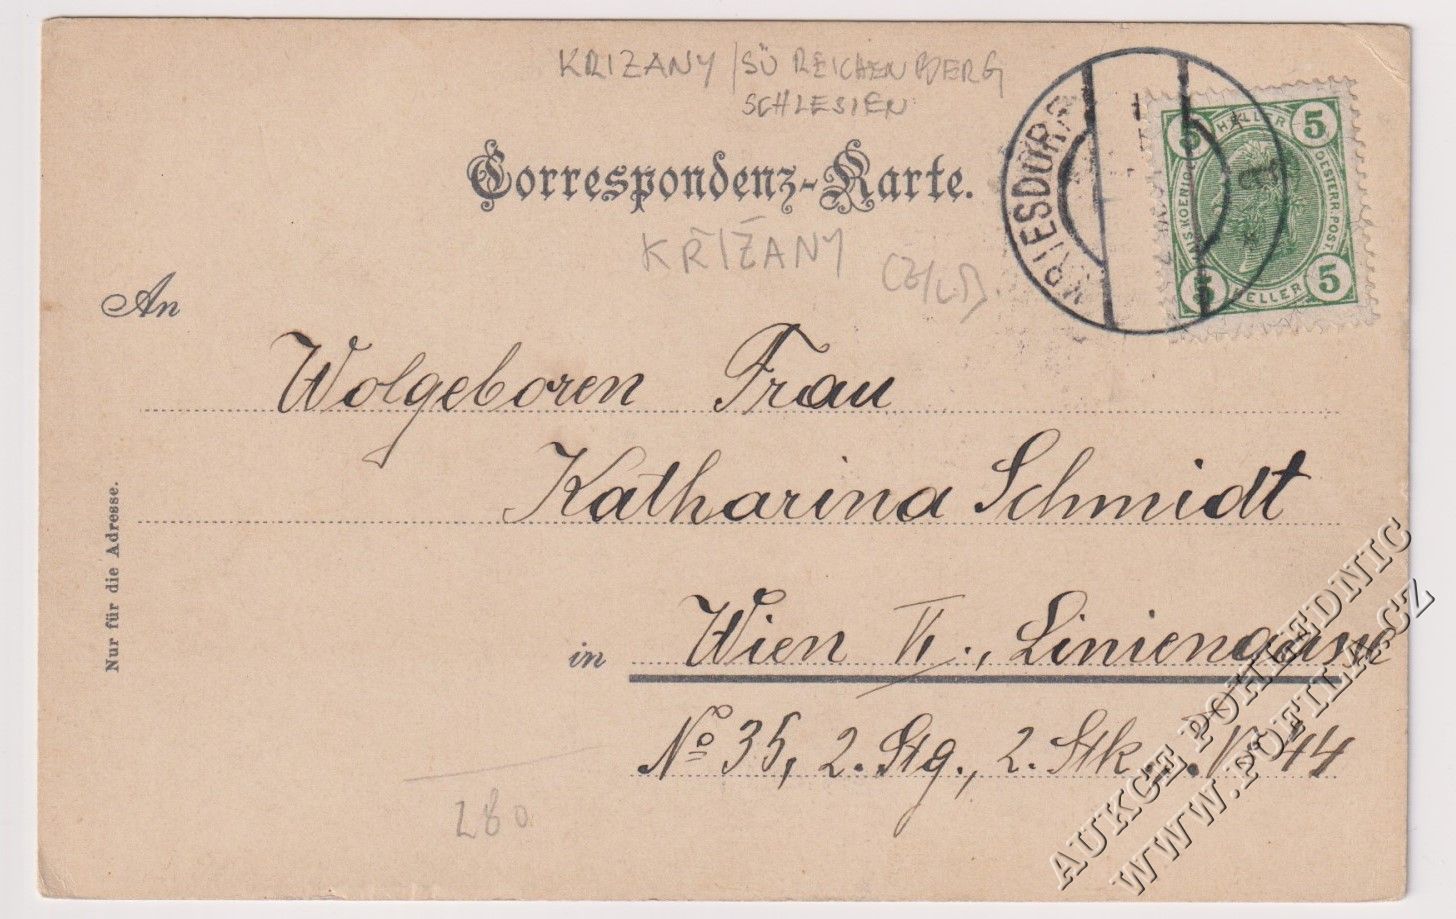 KRIZANY / SÜ REICHENBERG
SCHLESIEN
Correspondenz-Karte.
KŘIŽANY
KRIESDORF
5 HELLER 5
OESTERR. POST.
5 HELLER 5
An
Wolgeboren Frau
Katharina Schmidt
in Wien VI., Liniengasse
No 35, 2. Stg., 2. Stk. 44
Nur für die Adresse.
280
AUKCE POHLEDNIC
WWW.POFILA.CZ